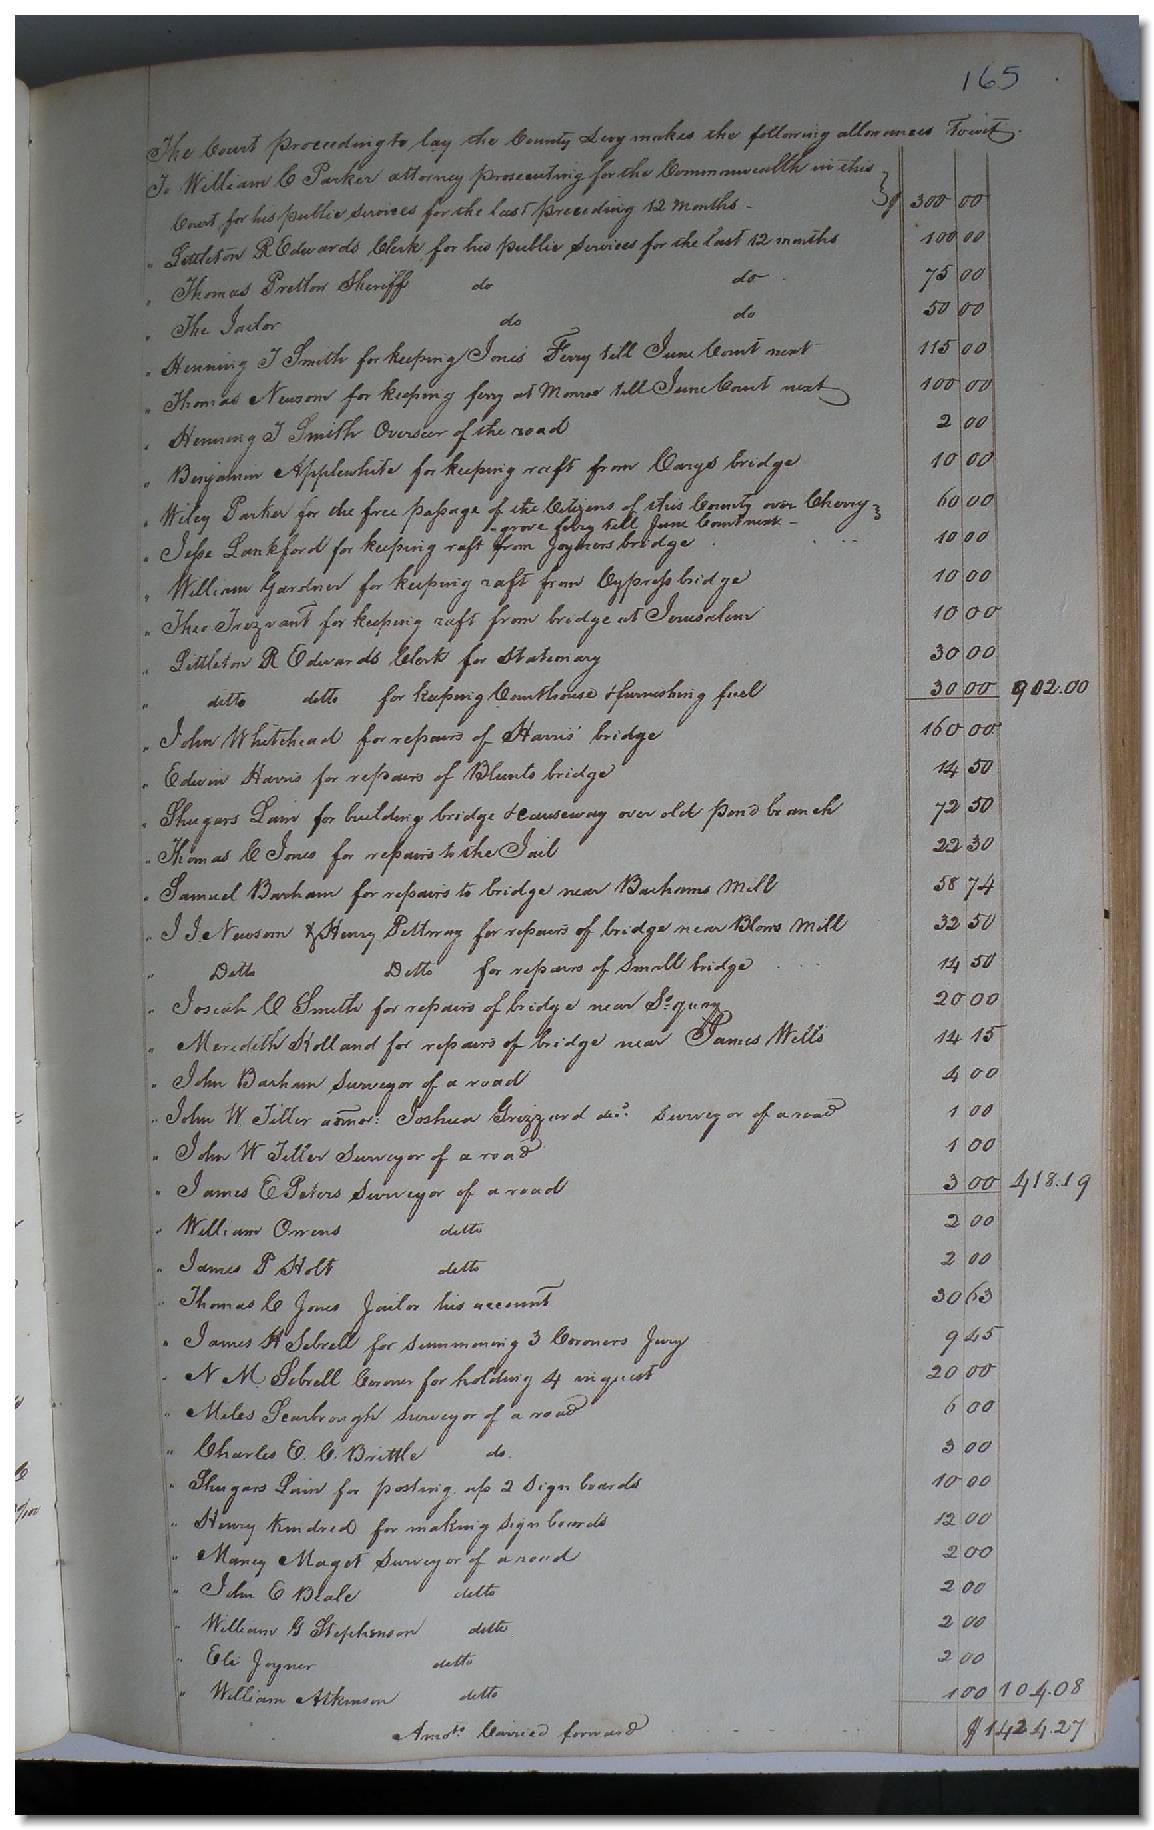 165
The Court proceeding to lay the County Levy makes the following allowances Towit.
To William C Parker attorney prosecuting for the Commonwealth in this
Court, for his public services for the last preceding 12 months - $ 300 00
" Littleton R Edwards Clerk for his public services for the last 12 months 100 00
" Thomas Pretlow Sheriff do do 75 00
" The Jailor do do 50 00
" Henning T Smith for keeping Jones Ferry till June Court next 115 00
" Thomas Newsom for keeping ferry at Monroe till June Court next 100 00
" Henning T Smith Overseer of the road 2 00
" Benjamin Applewhite for keeping raft from Carys bridge 10 00
" Wiley Parker for the free passage of the Citizens of this County over Cherry 60 00
grove ferry till June Court next -
" Jesse Lankford for keeping raft from Joyners bridge 10 00
" William Gardner for keeping raft from Cypress bridge 10 00
" Theo Trezvant for keeping raft from bridge at Jerusalem 10 00
" Littleton R Edwards Clerk for stationary 30 00
" ditto ditto for keeping Courthouse & furnishing fuel 30 00 902.00
" John Whitehead for repairs of Harris' bridge 160 00
" Edwin Harris for repairs of Blunts bridge 14 50
" Shugars Lain for building bridge & causeway over old pond branch 72 50
" Thomas C Jones for repairs to the Jail 22 30
" Samuel Barham for repairs to bridge near Barhams Mill 58 74
" J J Newsom & Henry Pettway for repairs of bridge near Blows Mill 32 50
" Ditto Ditto for repairs of small bridge 14 50
" Josiah C Smith for repairs of bridge near So. quay 20 00
" Meredith Holland for repairs of bridge near James Wells 14 15
" John Barham Surveyor of a road 4 00
" John W Titter admor. Joshua Grizzard decd. surveyor of a road 1 00
" John W Titter Surveyor of a road 1 00
" James E Peters Surveyor of a road 3 00 418.19
" William Owens ditto 2 00
" James P Holt ditto 2 00
" Thomas C Jones Jailor his account 30 63
" James H Sebrell for summoning 3 Coroners Jury 9 45
" N M. Sebrell Coroner for holding 4 inquest 20 00
" Miles Scarbrough surveyor of a road 6 00
" Charles E. C. Brittle do. 3 00
" Shugars Lain for posting up 2 Sign boards 10 00
" Henry Kindred for making sign boards 12 00
" Maney Maget Surveyor of a road 2 00
" John E Beale ditto 2 00
" William G Stephenson ditto 2 00
" Eli Joyner ditto 2 00
" William Atkinson ditto 1 00 104.08
Amots Carried forward $1424.27